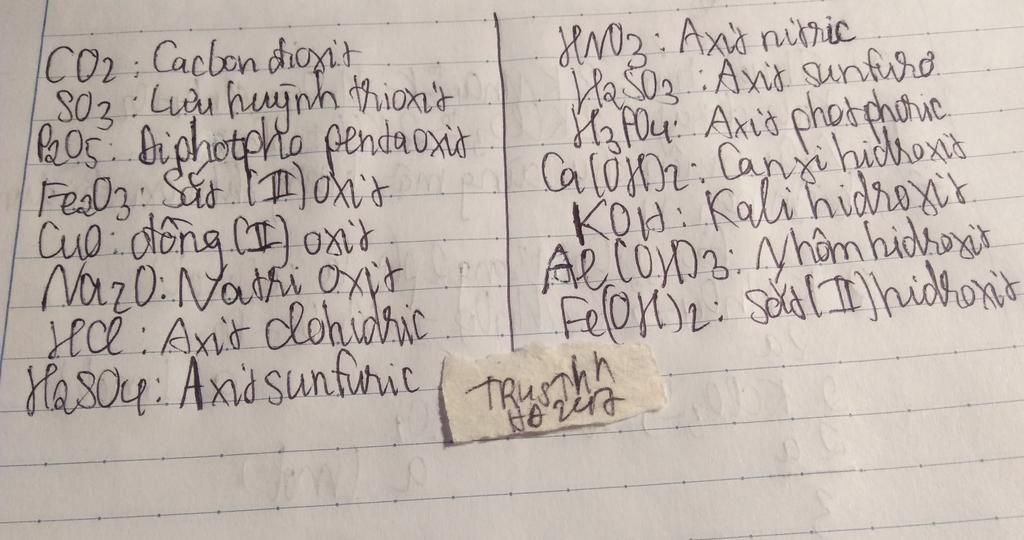 CO2: Cacbon đioxit
SO3: Lưu huỳnh trioxit
P2O5: Điphotpho pentaoxit
Fe2O3: Sắt (III) oxit
CuO: đồng (II) oxit
Na2O: Natri oxit
HCl: Axit clohiđric
H2SO4: Axit sunfuric
HNO3: Axit nitric
H2SO3: Axit sunfurơ
H3PO4: Axit photphoric
Ca(OH)2: Canxi hidroxit
KOH: Kali hidroxit
Al(OH)3: Nhôm hidroxit
Fe(OH)2: Sắt (II) hidroxit